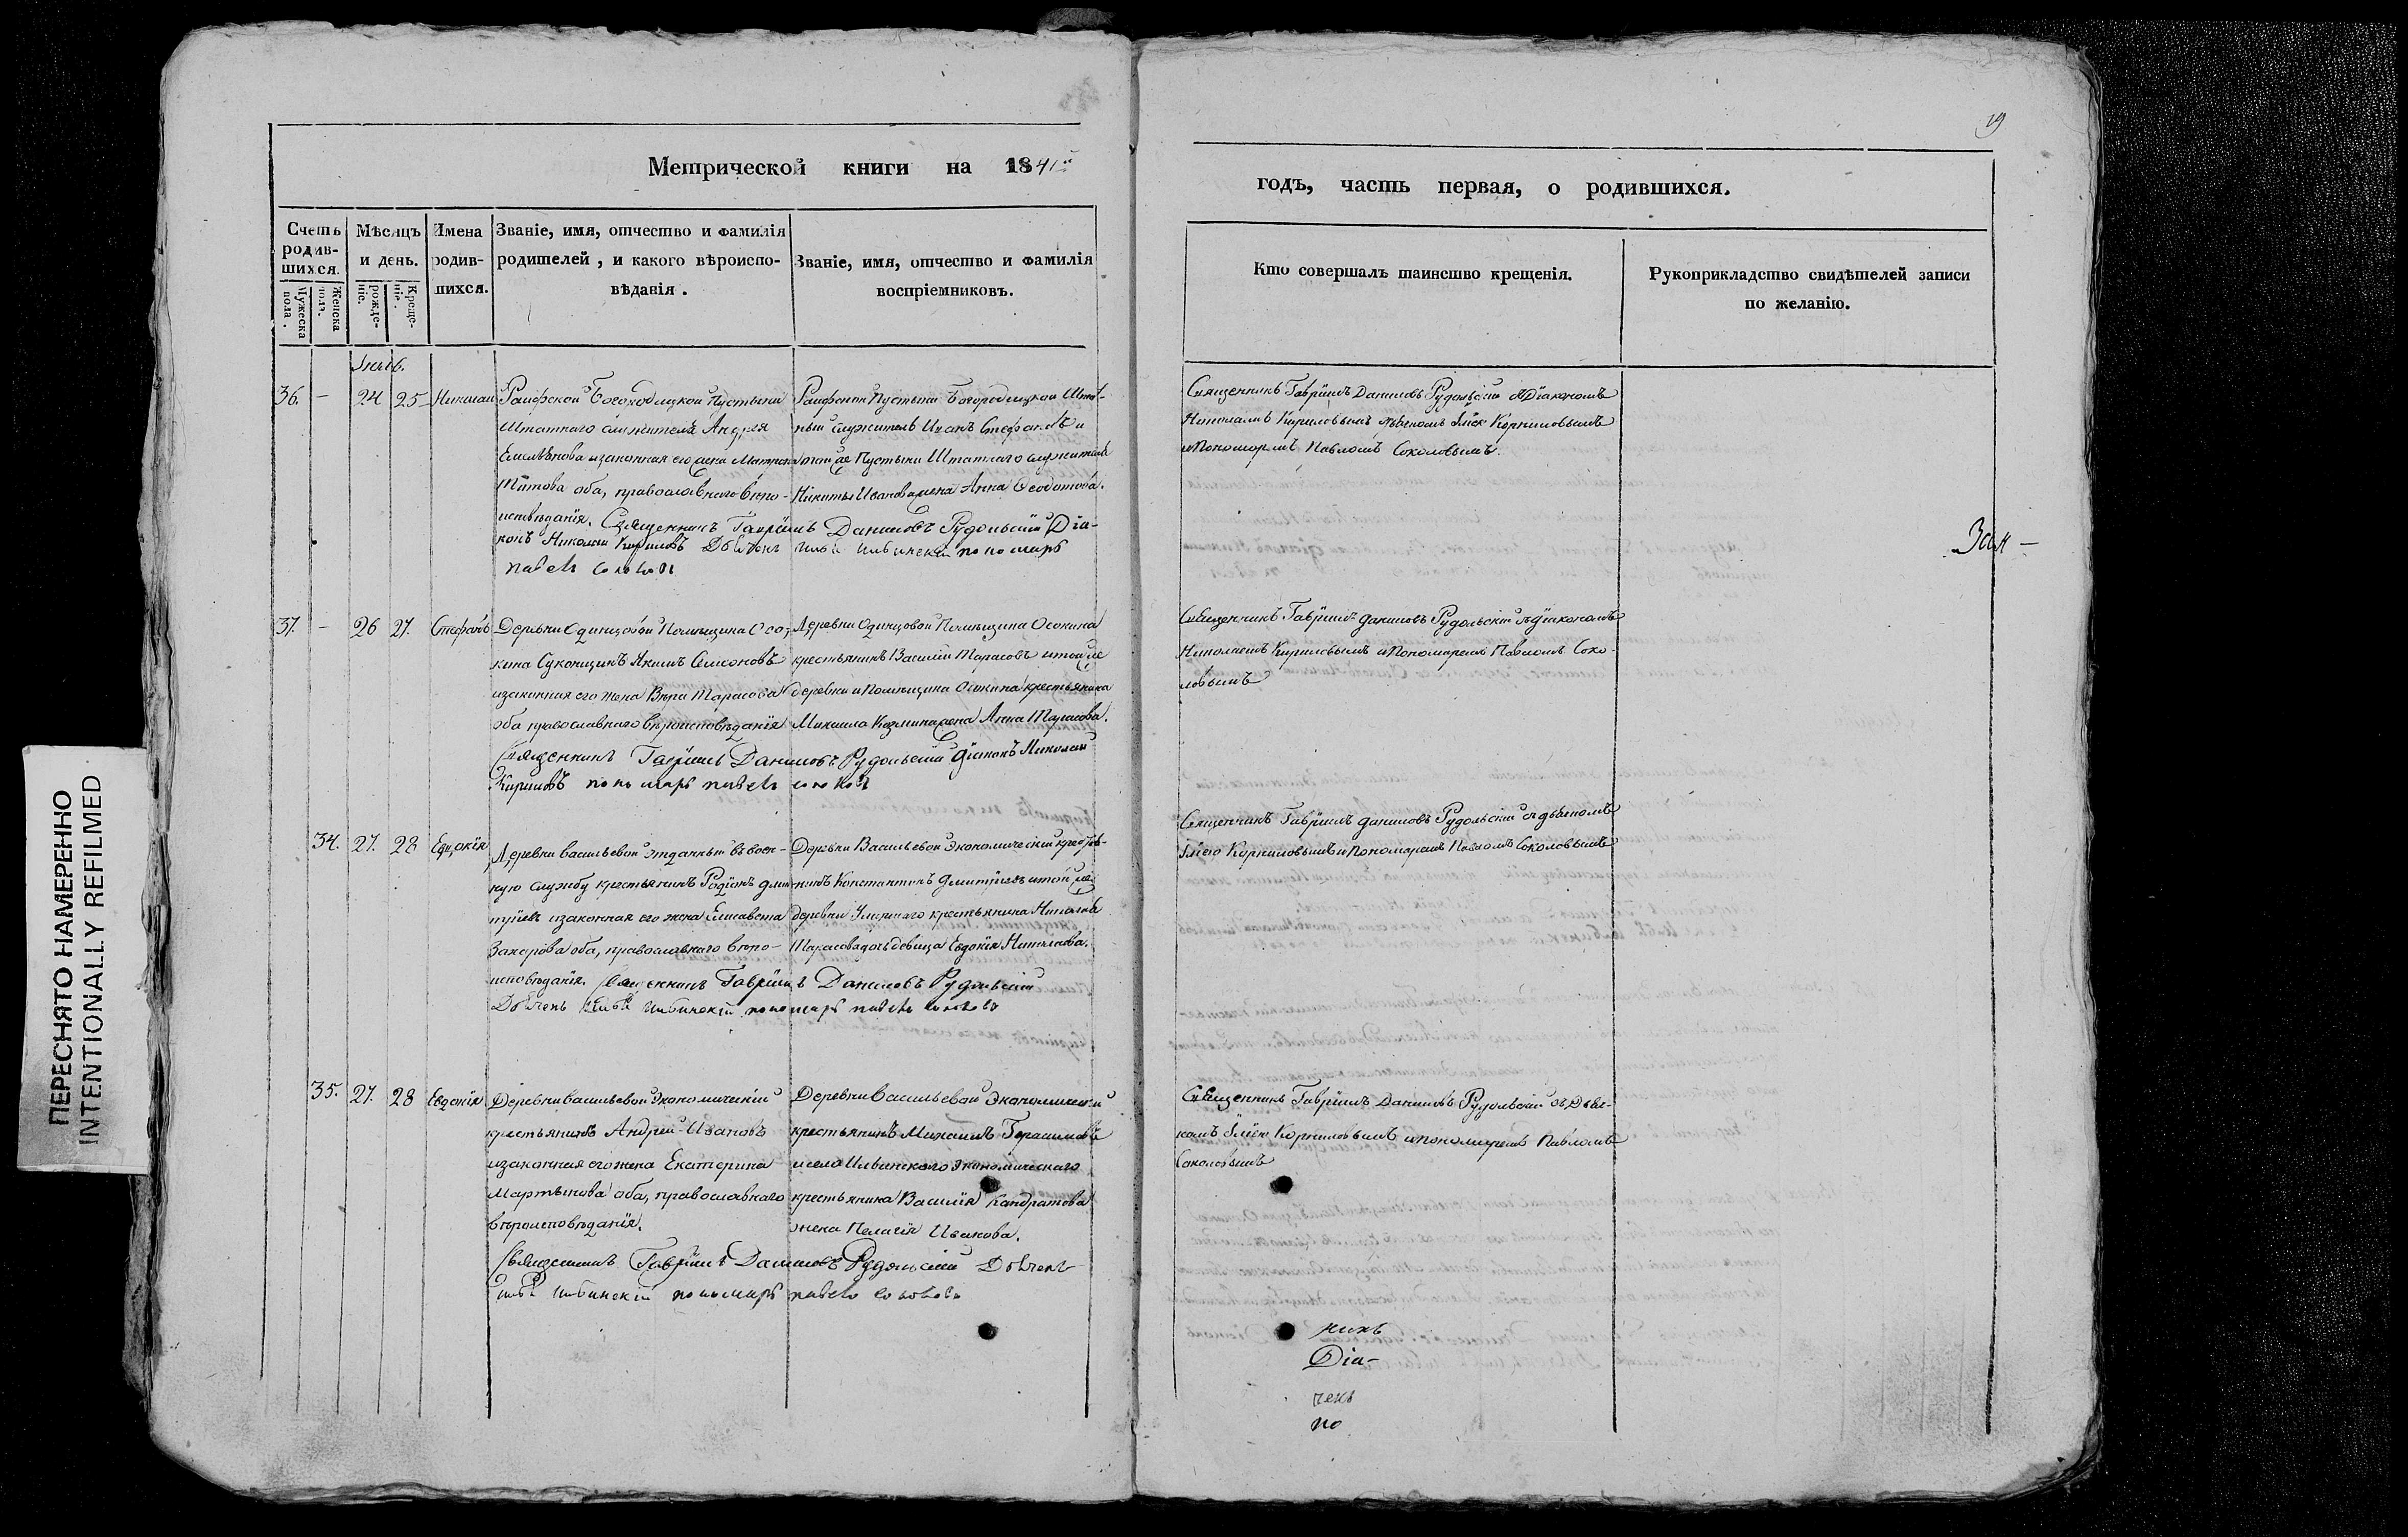 19
Метрической книги на 1841й
годъ, часть первая, о родившихся.
Счетъ родившихся.
Мужеска пола.
Женска пола.
Мѣсяцъ и день.
рожденіе.
Крещеніе.
Имена родившихся.
Званіе, имя, отчество и фамилія
родителей, и какого вѣроиспо-
вѣданія.
Званіе, имя, отчество и фамилія
воспріемниковъ.
Кто совершалъ таинство крещенія.
Рукоприкладство свидѣтелей записи
по желанію.
36. — 24 25 Николай
Раифской Богородицкой Пустыни
Штатнаго служителя Андрея
изаконная его жена Матрона
Титова оба, православнаго вѣро-
исповѣданія. Священникъ Гавріилъ Даниловъ Рудольскій Діа-
конъ Николай Кириловъ Дьячекъ Илья Ильинскій пономарь
павелъ соколовъ
Раифской Пустыни Богородицкой Штат-
ный служитель Иванъ Стефановъ и
тойже Пустыни Штатнаго служителя
Никиты Иванова жена Анна Ѳеодотова.
Священникъ Гавріилъ Даниловъ Рудольскій съ Діакономъ
Николаемъ Кириловымъ дьячкомъ Корниловымъ
и Пономаремъ Павломъ Соколовымъ.
37. — 26 27. Стефанъ
Деревни Одинцовой Помѣщика Осо-
кина Суконщикъ Акимъ Семеновъ
изаконная его жена Вѣра Тарасова
оба православнаго вѣроисповѣданія
Священникъ Гавріилъ Даниловъ Рудольскій діаконъ Николай
Кириловъ пономарь павелъ соколовъ
Деревни Одинцовой Помѣщика Осокина
крестьянинъ Василій Тарасовъ итойже
деревни и Помѣщика Осокина крестьянина
Михаила Козмина жена Анна Тарасова.
Священникъ Гавріилъ Даниловъ Рудольскій съдіакономъ
Николаемъ Кириловымъ и Пономаремъ Павломъ Соко-
ловымъ
34. 27. 28 Евдокія
Деревни Васильевой отданный въ воен-
ную службу крестьянинъ Родіонъ Дми-
тріевъ изаконная его жена Елисавета
Захарова оба, православнаго вѣро-
исповѣданія. Священникъ Гавріилъ Даниловъ Рудольскій
Дьячекъ Илья Ильинскій пономарь павелъ соколовъ
Деревни Васильевой Экономической крестья-
нинъ Константинъ Дмитріевъ итойже
деревни Умершаго крестьянина Николая
Тарасова дочь девица Евдокія Николаева.
Священникъ Гавріилъ Даниловъ Рудольскій съдьячкомъ
Ильею Корниловымъ и Пономаремъ Павломъ Соколовымъ
35. 27. 28 Евдокія
Деревни Васильевой Экономической
крестьянинъ Андрей Ивановъ
изаконная его жена Екатерина
Мартынова оба, православнаго
вѣроисповѣданія.
Священникъ Гавріилъ Даниловъ Рудольскій Дьячекъ
Илья Ильинскій пономарь павелъ соколовъ
Деревни Васильевой Экономической
крестьянинъ Михаилъ Герасимовъ
и села Ильинскаго Экономическаго
крестьянина Василія Кандратова
жена Пелагія Иванова.
Священникъ Гавріилъ Даниловъ Рудольскій съ Дьяч-
комъ Ильею Корниловымъ и пономаремъ Павломъ
Соколовымъ
никъ
Діа-
чекъ
по
ПЕРЕСНЯТО НАМЕРЕННО
INTENTIONALLY REFILMED